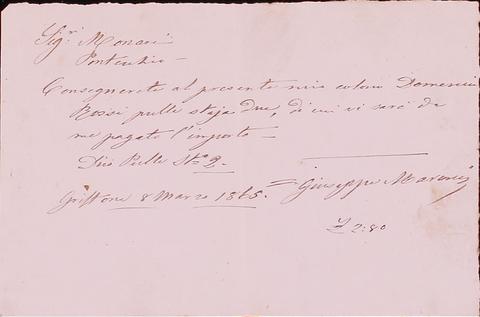 Sigr. Monari
Pontecchio –
Consegnerete al presente mio colono Domenico
Rossi pulle staja due, di cui vi sarà da
me pagato l'importo –
Dico Pulle Sta. 2. –
Griffone 8 Marzo 1865. = Giuseppe
£ 2:80